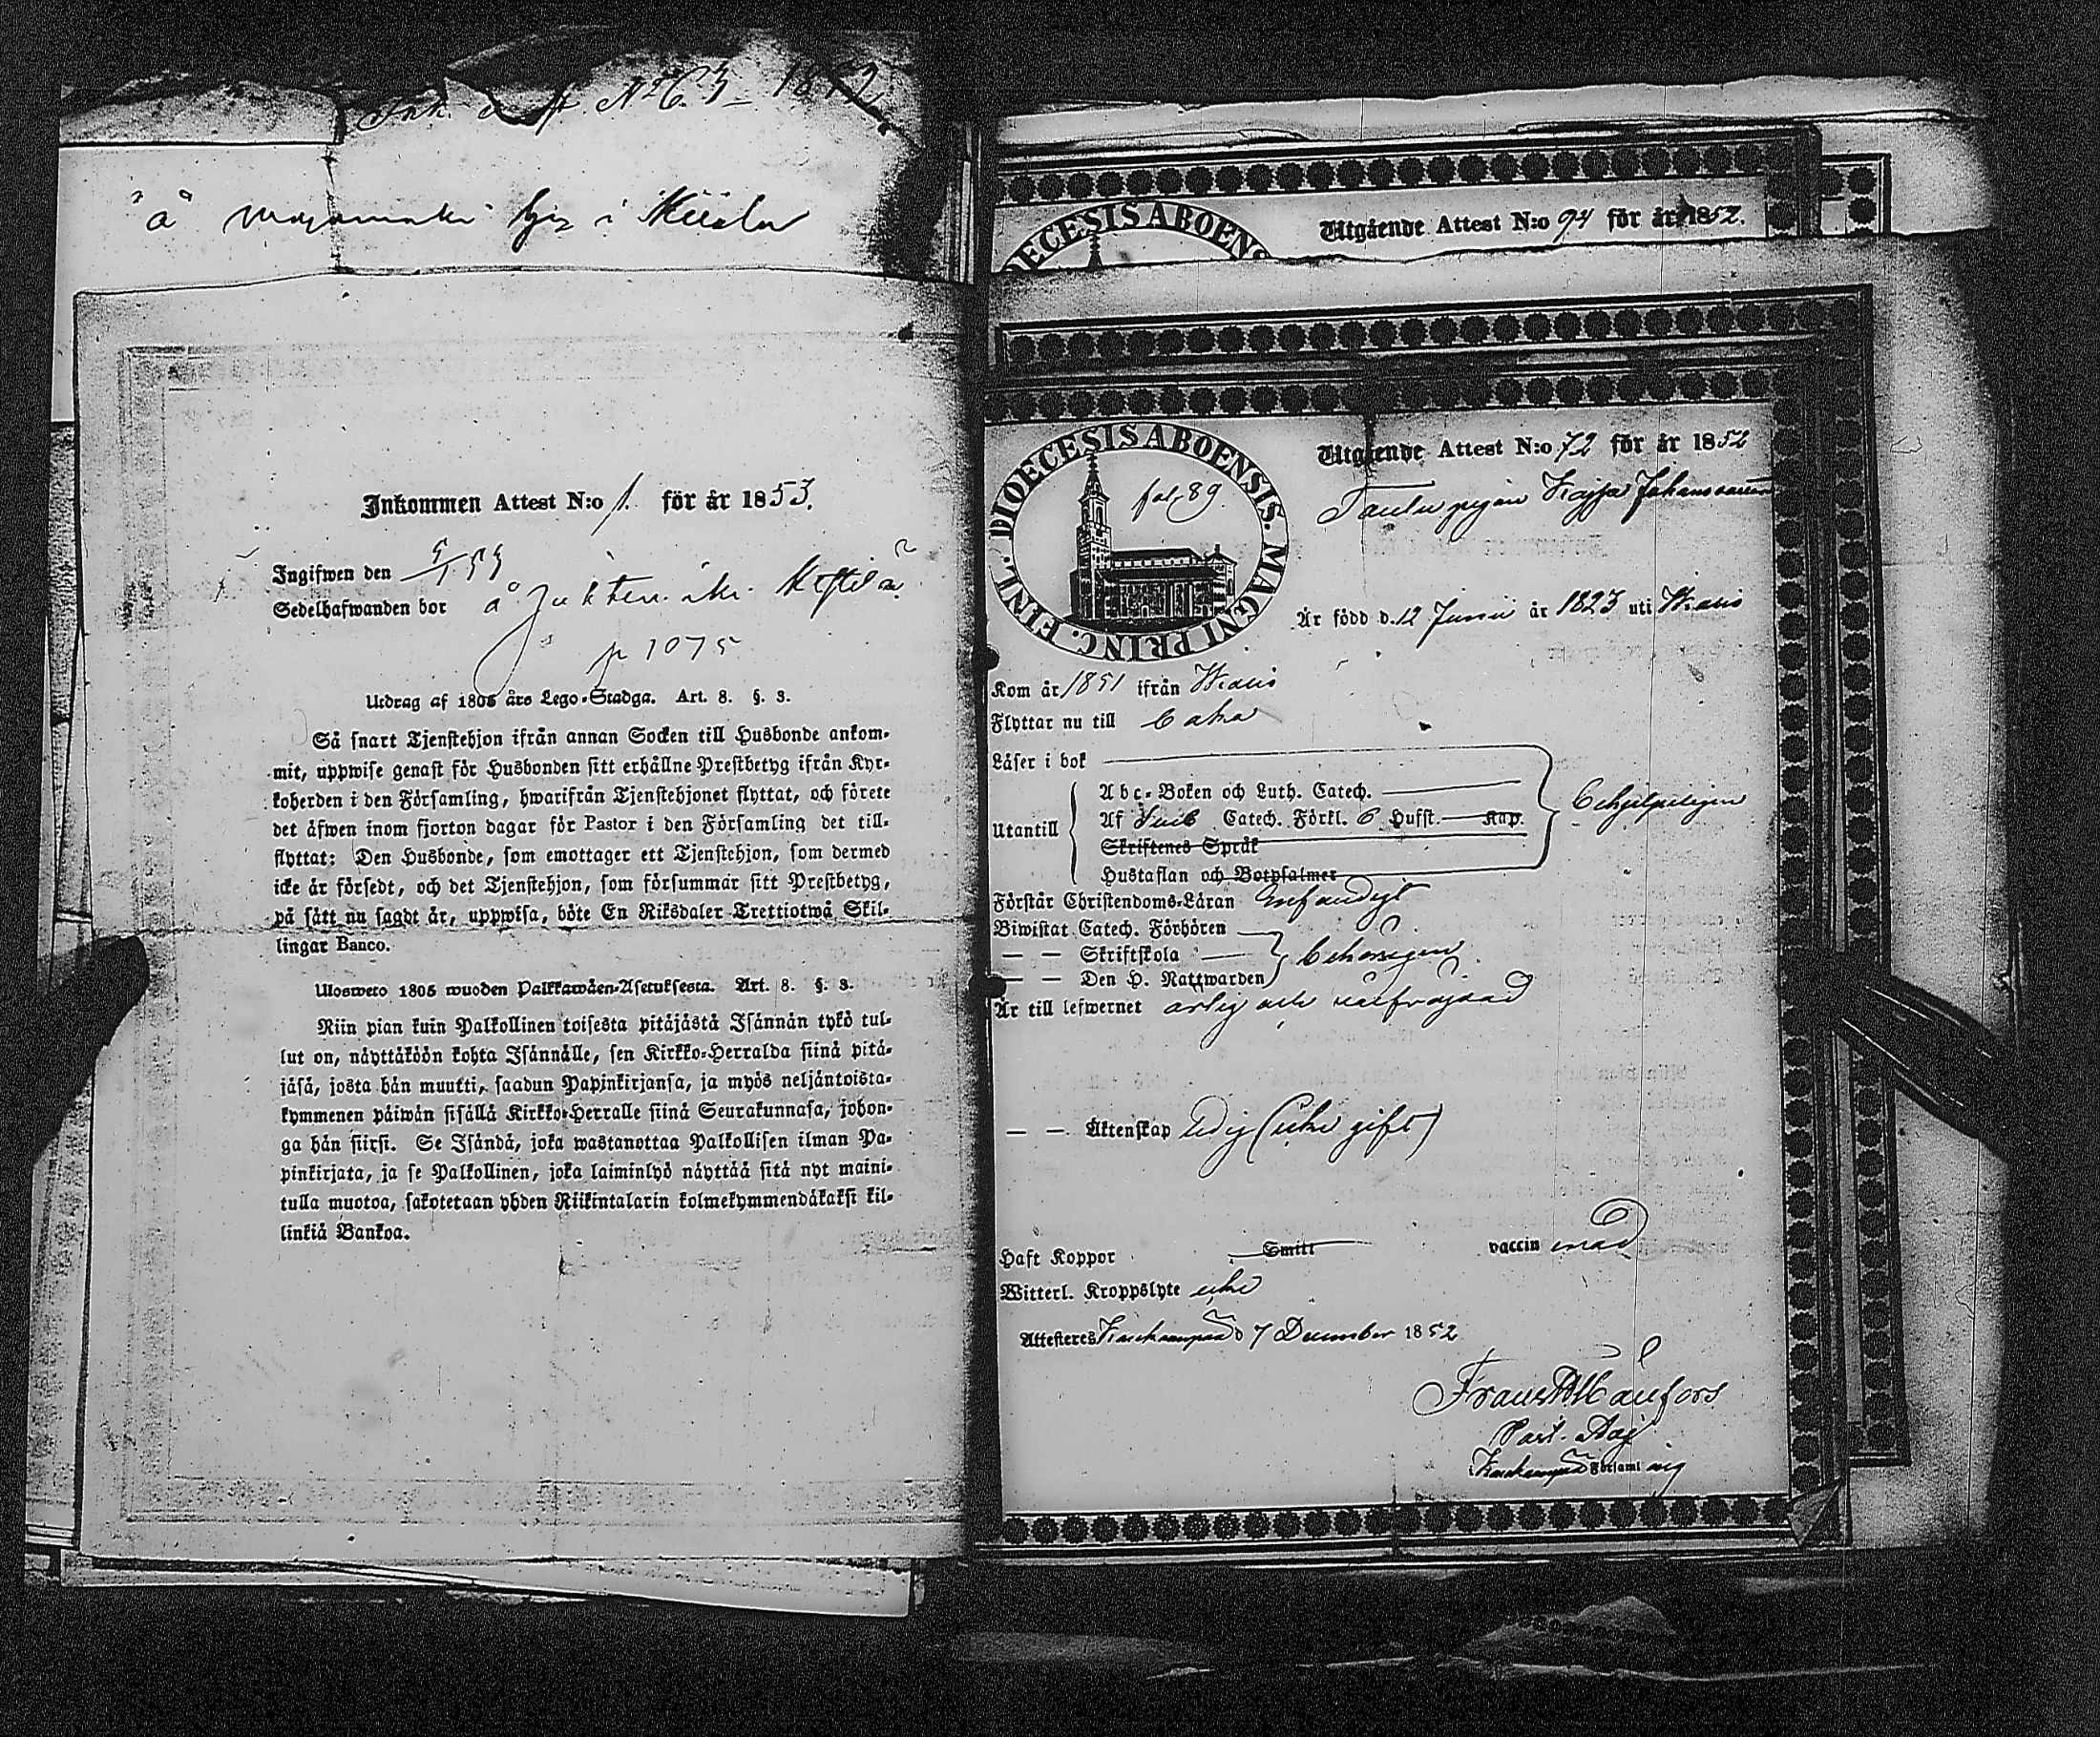 N:o 63 1852
å i
Inkommen Attest N:o 1. för år 1853.
Ingifwen den 5/1 53
Sedelhafwanden bor å
p 1075
Utdrag af 1805 års Lego-Stadga. Art. 8. §. 3.
Så snart Tjenstehjon ifrån annan Socken till Husbonde ankom-
mit, uppwise genast för Husbonden sitt erhållne Prestbetyg ifrån Kyr-
koherden i den Församling, hwarifrån Tjenstehjonet flyttat, och förete
det äfwen inom fjorton dagar för Pastor i den Församling det till-
flyttat: Den Husbonde, som emottager ett Tjenstehjon, som dermed
icke är försedt, och det Tjenstehjon, som försummar sitt Prestbetyg,
på sätt nu sagdt är, uppwisa, böte En Riksdaler Trettiotwå Skil-
lingar Banco.
Ulosweto 1805 wuoden Palkkawäen-Asetuksesta. Art. 8. §. 3.
Niin pian kuin Palkollinen toisesta pitäjästä Isännän tykö tul-
lut on, näyttäköön kohta Isännälle, sen Kirkko-Herralda siinä pitä-
jäsä, josta hän muutti, saadun Papinkirjansa, ja myös neljäntoista-
kymmenen päiwän sisällä Kirkko-Herralle siinä Seurakunnasa, johon-
ga hän siirsi. Se Isändä, joka wastanottaa Palkollisen ilman Pa-
pinkirjata, ja se Palkollinen, joka laiminlyö näyttää sitä nyt maini-
tulla muotoa, sakotetaan yhden Riikintalarin kolmekymmendäkaksi kil-
linkiä Bankoa.
DIOECESIS ABOENS
Utgående Attest N:o 94 för år 1852.
DIOECESIS ABOENSIS. MAGNI PRINC. FINL.
fol 89.
Utgående Attest N:o 72 för år 1852
pigan Kajsa Johansdotter
Är född d. 12 Junii år 1823 uti
Kom år 1851 ifrån
Flyttar nu till
Läser i bok
Abc-Boken och Luth. Catech.
Utantill Af Sveb Catech. Förkl. 6 Hufst. Kap.
Skriftenes Språk
Hustaflan och Botpsalmer
behjelpeligen
Förstår Christendoms-Läran Enfaldigt
Biwistat Catech. Förhören
— — Skriftskola
— — Den H. Nattwarden
behörigen
Är till lefwernet ärlig och
— — Äktenskap ledig (icke gift)
Haft Koppor Smitt vaccinerad
Witterl. Kroppslyte icke
Attesteres d 7 December 1852
Past. Adj
i Församling